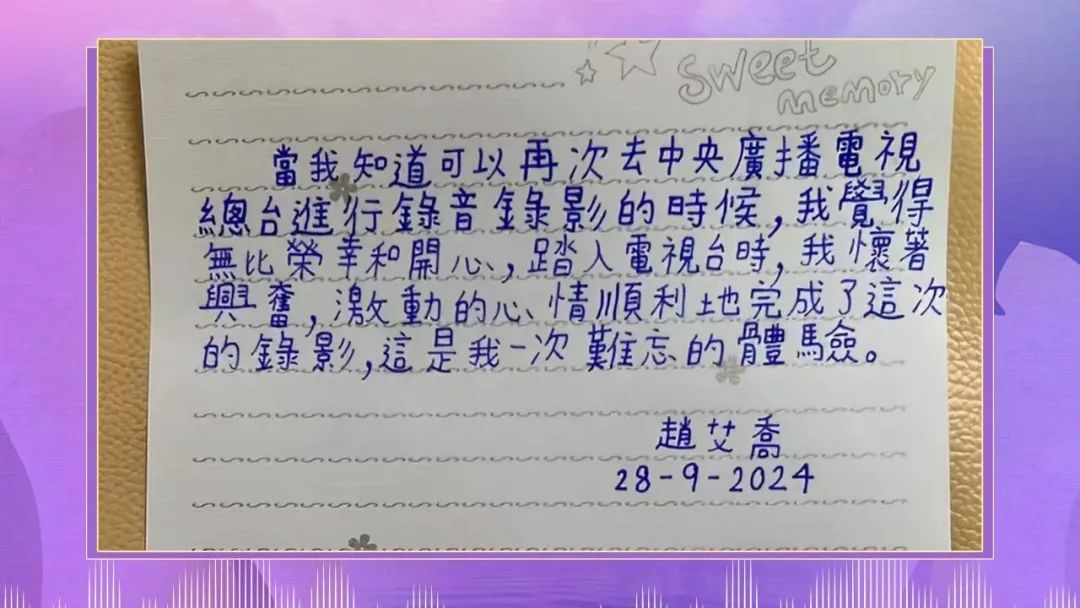 Sweet
memory
當我知道可以再次去中央廣播電視
總台進行錄音錄影的時候，我覺得
無比榮幸和開心，踏入電視台時，我懷著
興奮，激動的心情順利地完成了這次
的錄影，這是我一次難忘的體驗。
趙艾喬
28-9-2024